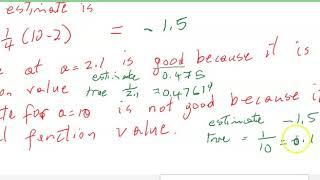 estimate is
1/4 (10-2) = -1.5
at a=2.1 is good because it is
value estimate 0.475
true 1/2.1 = 0.47619
for a=10 is not good because
function value. estimate -1.5
true = 1/10 = 0.1